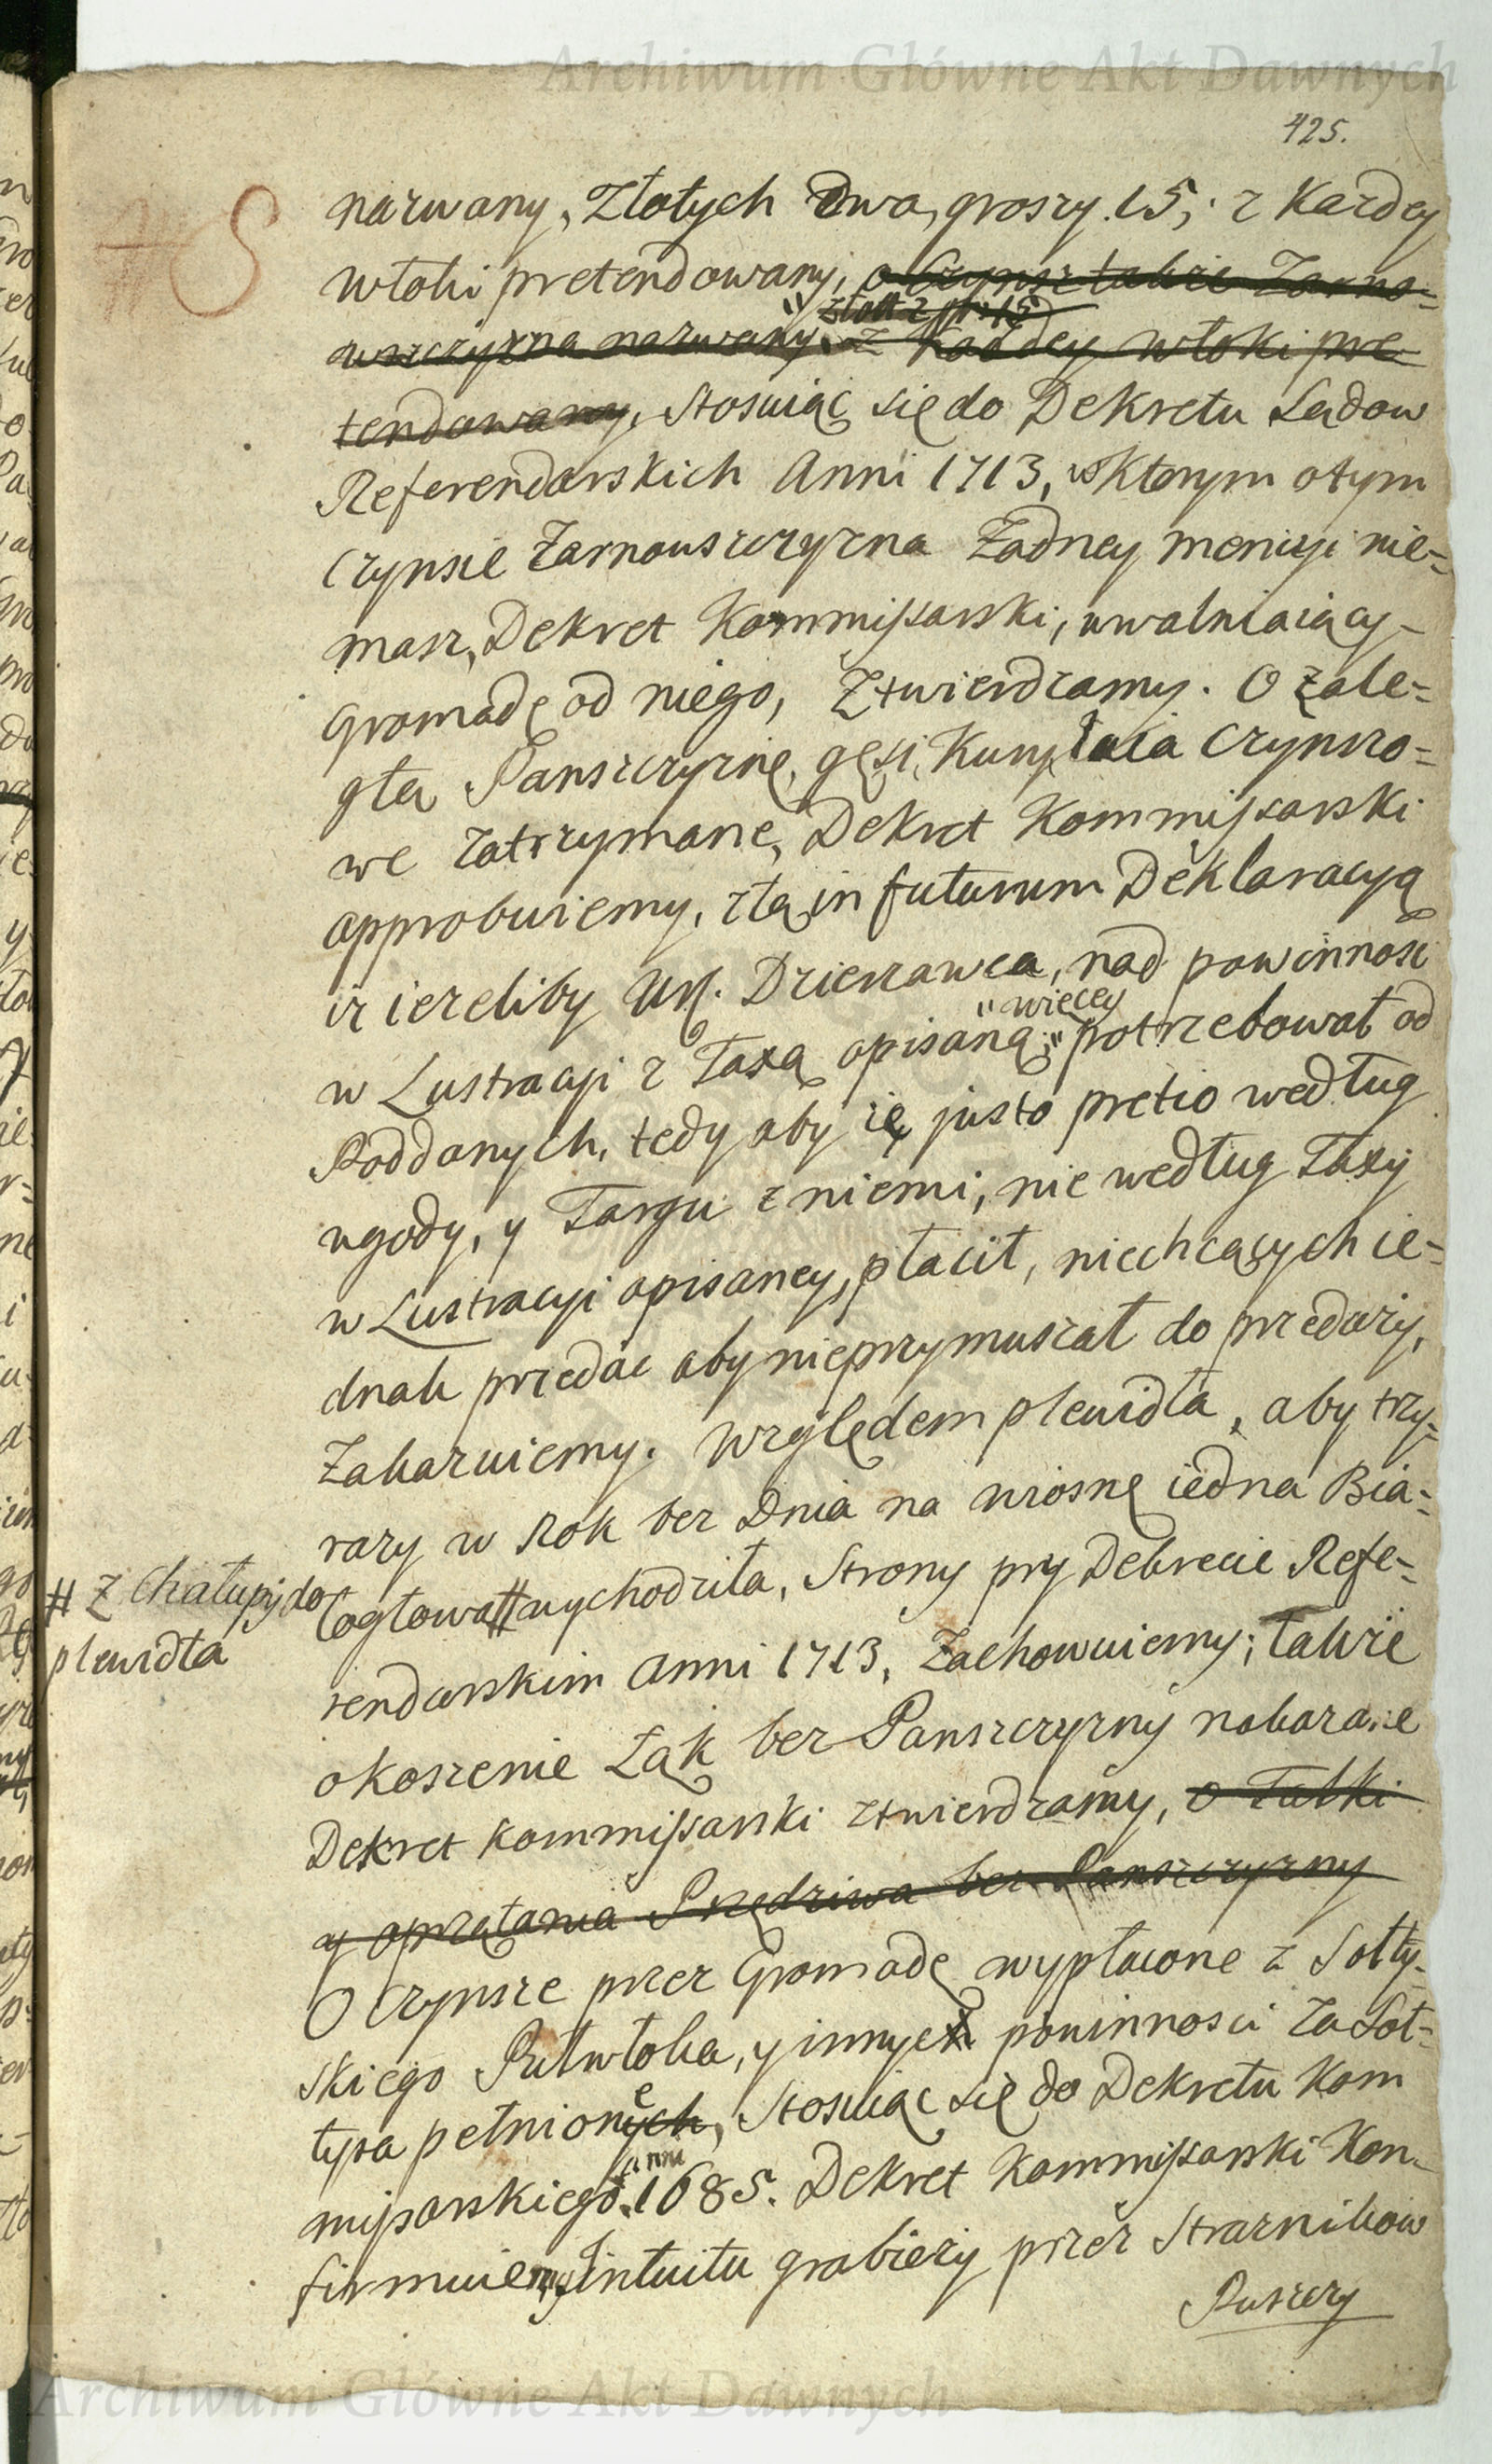 Archiwum Główne Akt Dawnych
425.
nazwany, Złotych dwa, groszy. 15; z Kazdey
włoki pretendowany, o Czynsz takze Zarno-
wszczyzna nazwany, złott 2 gr: 15 z Kazdey włoki pre
tendowany, Stosuiąc się do Dekretu Sądow
Referendarskich Anni 1713, w Ktorym o tym
Czynsie Żarnouszczyzna Żadney mencyi nie=
masz, Dekret Kommissarski, uwalniaiący
Gromadę od niego, Ztwierdzamy. O zale=
głą Panszczyznę, gęsi, Kury, iaia Czynszo=
we zatrzymane, Dekret Kommissarski
approbuiemy, z tą in futurum Deklaracyą
iz iezeliby Ur. Dzierzawca, nad powinnosc
w Lustracyi z Taxą opisaną, "więcey" potrzebował od
Poddanych, tedy aby ię justo pretio według
ugody, y Targu z niemi, nie według Taxy
w Lustracyi opisaney, płacił, niechcących ie=
dnak przedac aby nieprzymuszał do przedazy,
Zakazuiemy. Względem plewidła, aby trzy=
razy w Rok bez Dnia na wiosnę iedna Bia=
łogłowa # wychodziła, Strony przy Dekrecie Refe=
# z Chałupy do
plewidła
rendarskim Anni 1713, Zachowuiemy; także
o koszenie Łąk bez Panszczyzny nakazane
Dekret Kommissarski ztwierdzamy, o Tałki
y oprzątania Przędziwa bez Panszczyzny
O Czynsze przez Gromadę wypłacone z Sołty-
skiego Pułwłoka, y innych powinnosci za Soł=
tysa pełnione, Stosuiąc się do Dekretu Kom
missarskiego anni 1685. Dekret Kommissarski Kon-
firmuiemy, Intuitu grabiezy przez Straznikow
Puszczy
Archiwum Główne Akt Dawnych